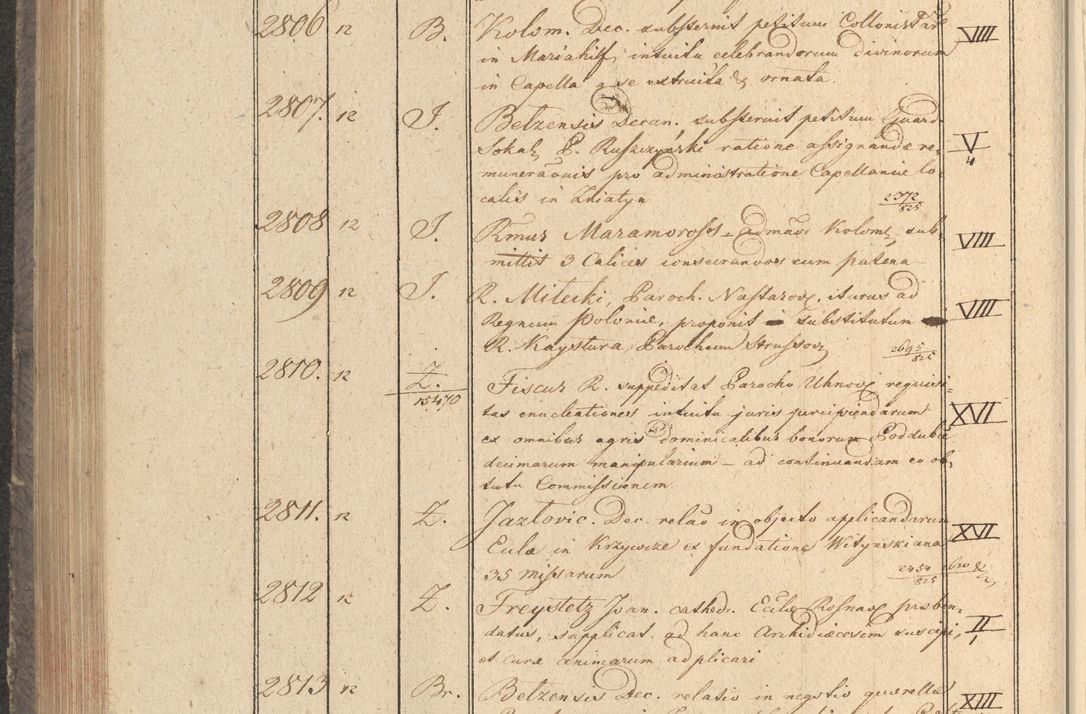 2806 12 B. Kolom. Dec. substernit petitum Collonistar.
in Mariahilf, intuitu celebrandorum divinorum VIII
in Capella a se extructa & ornata.
2807. 12 I. Belzensis Decan. substernit petitum Guard.
Sokal, P. Ruszczyński ratione assignandæ re- V/4
muneraōnis pro administratione Capellaniæ lo-
calis in Zniatyn 2372/825
2808 12 I. Rmus Maramoross. Admāor Kolom. sub- VIII
mittit 3 Calices consecrandos cum patena
2809 12 I. R. Milecki, Paroch. Nastasov. iturus ad
Regnum Poloniæ, proponit substitutum VIII
R. Kaystura, Parochum Strussov. 2695/825
2810. 12 Z./15470 Fiscus R. suppeditat Parocho Uhnov. requisi-
tas enucleationes intuitu juris percipiendarum XVI
ex omnibus agris dominicalibus bonorum Poddubce
decimarum manipularium ad continuandam eo ob-
tutu Commissionem
2811. 12 Z. Jazlovic. Dec. relaō in objecto applicandarum
Eclæ in Krzywcze ex fundatione Witynskiana XVI
35 Missarum 2454/825
2812 12 Z. Freystetz Joan. cathedr. Eclæ Rosnav. præben-
datus, supplicat ad hanc Archidiæcesim suscipi, II/1
et curæ animarum adplicari
2813 12 Br. Belzensis Dec. relatio in negotio quærellæ XIII